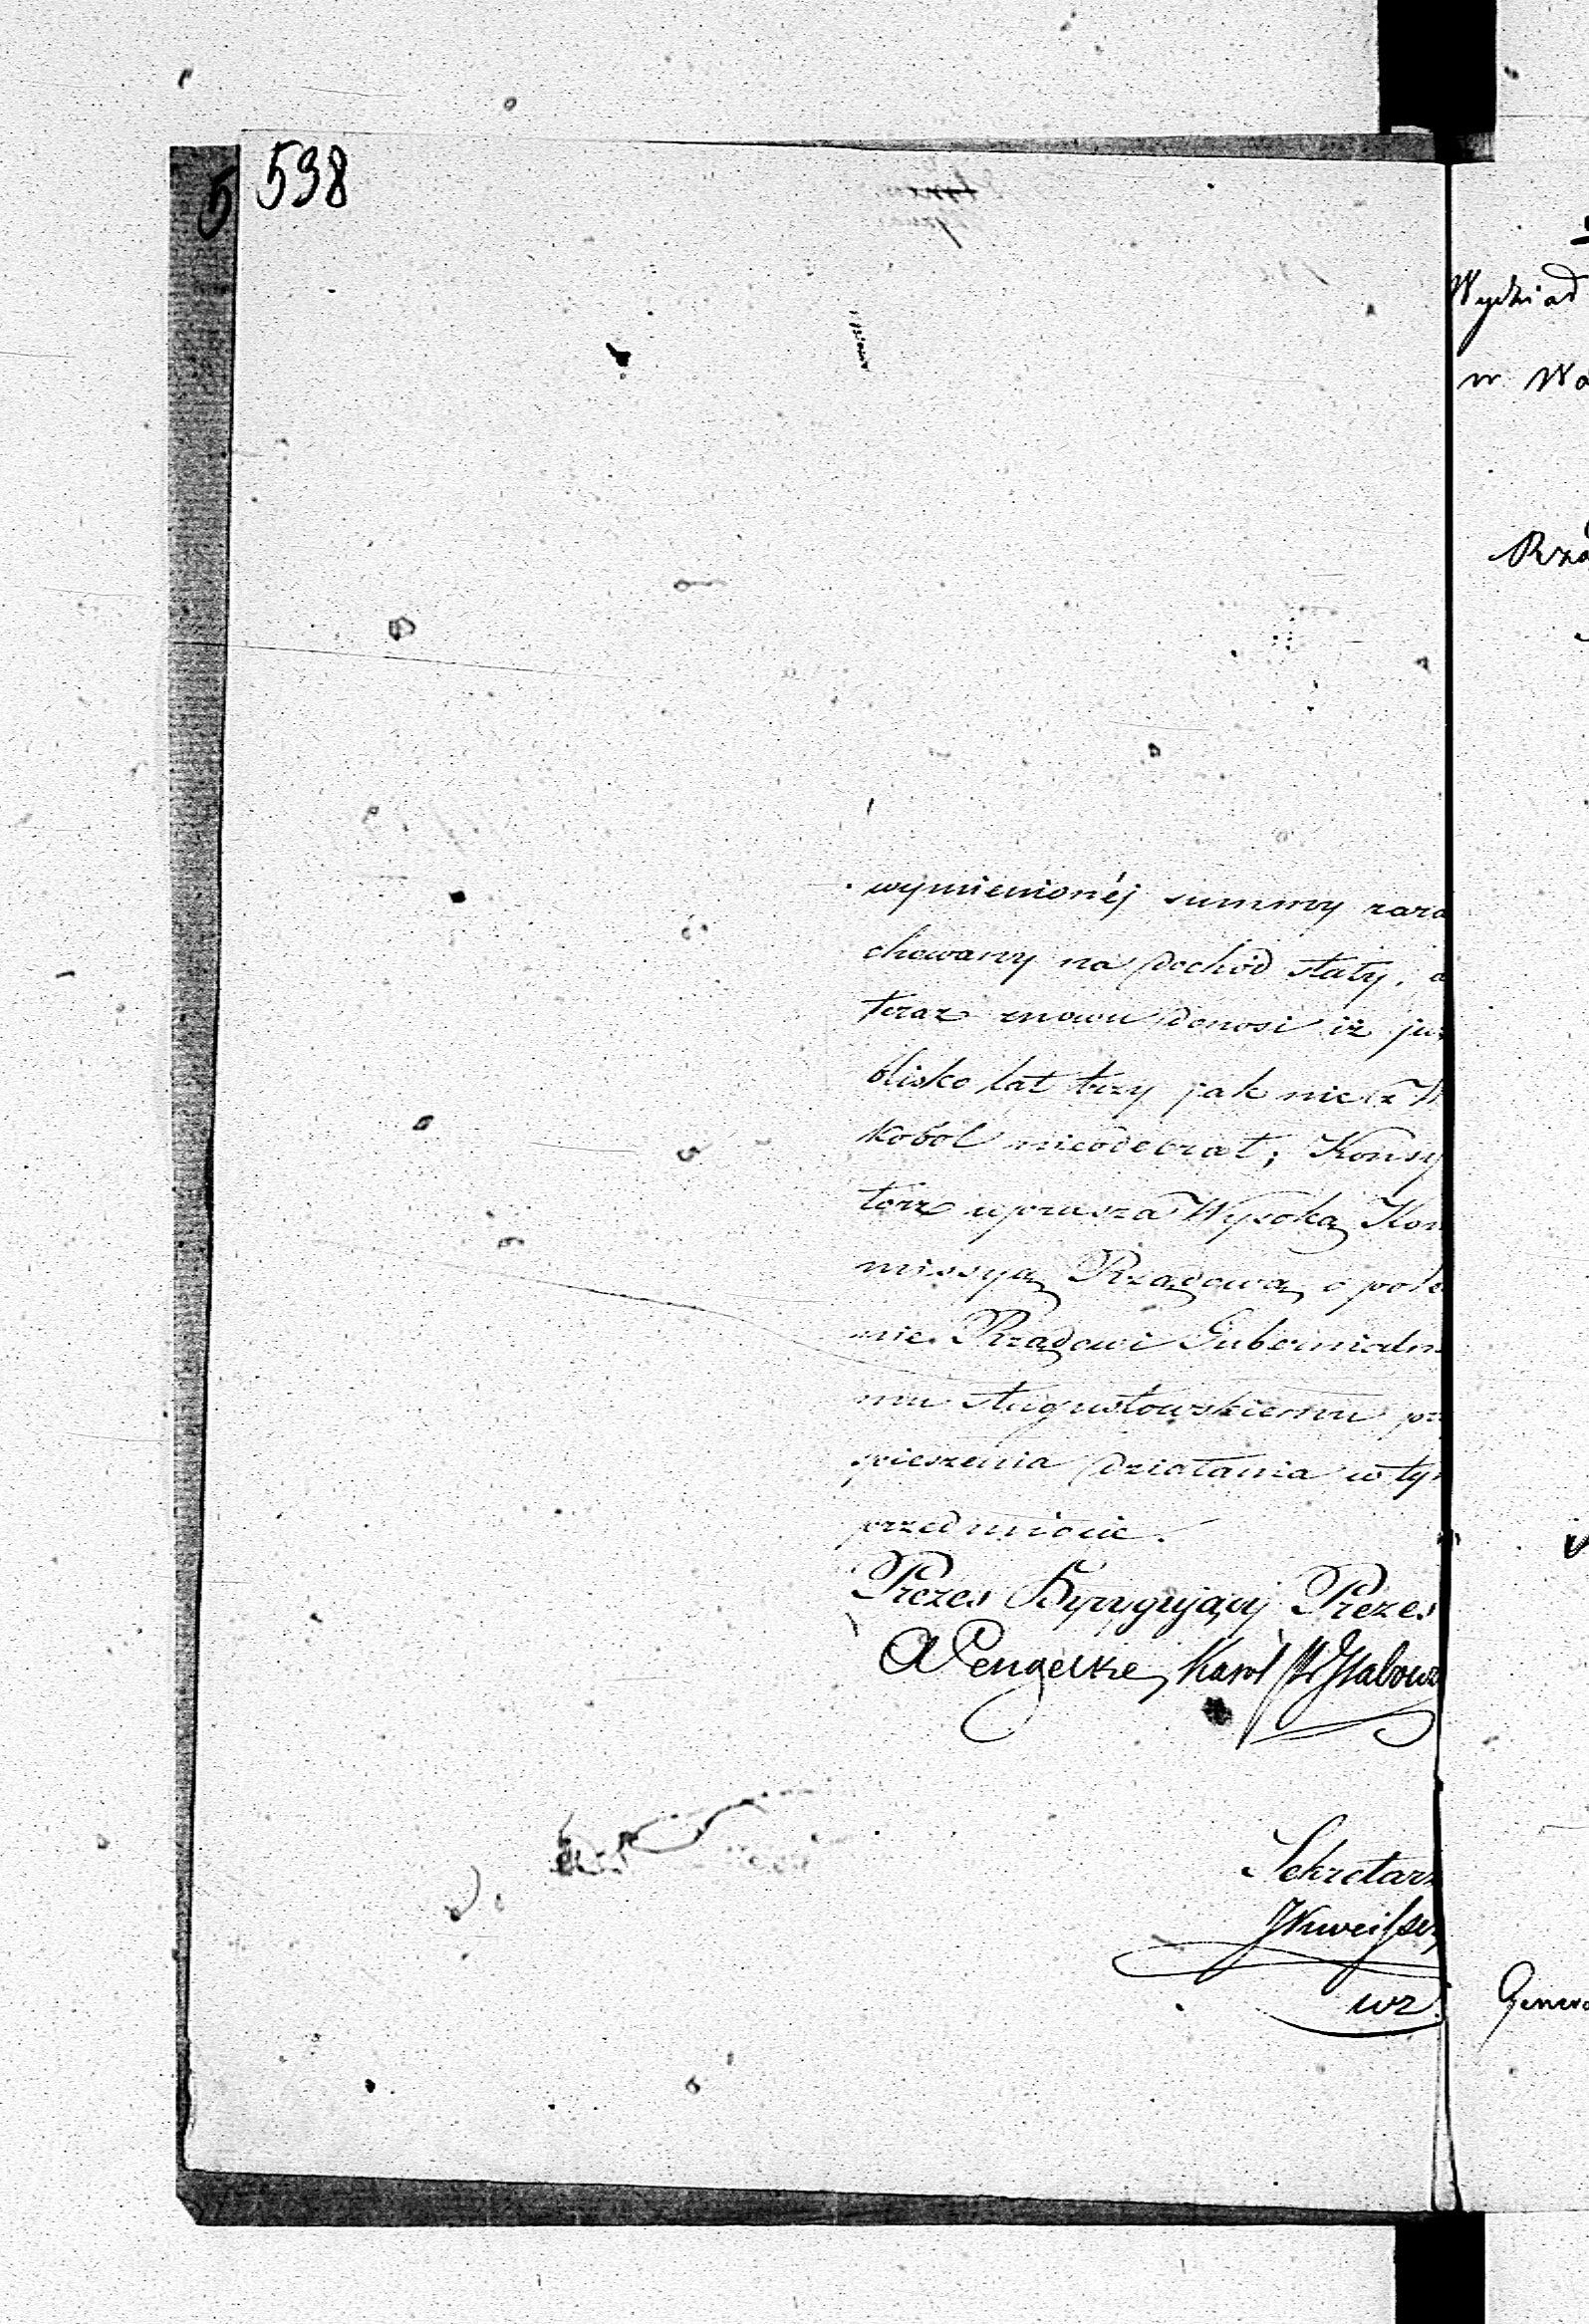 598
wymienionéj summy zara
chowany na dochód stały, a
teraz znowu donosi iż ju
blisko lat trzy jak nic z W
Koból nieodebrał; Konsy
torz uprasza Wysoką Kom
missyą Rządową o pole
nie Rządowi Gubernialne
mu Augustowskiemu prz
spieszenia działania w ty
przedmiocie.
Prezes Dyrygujący Prezes
Karol
Sekretarz
wz.
Wydział
w Wa
Rzą
Genera